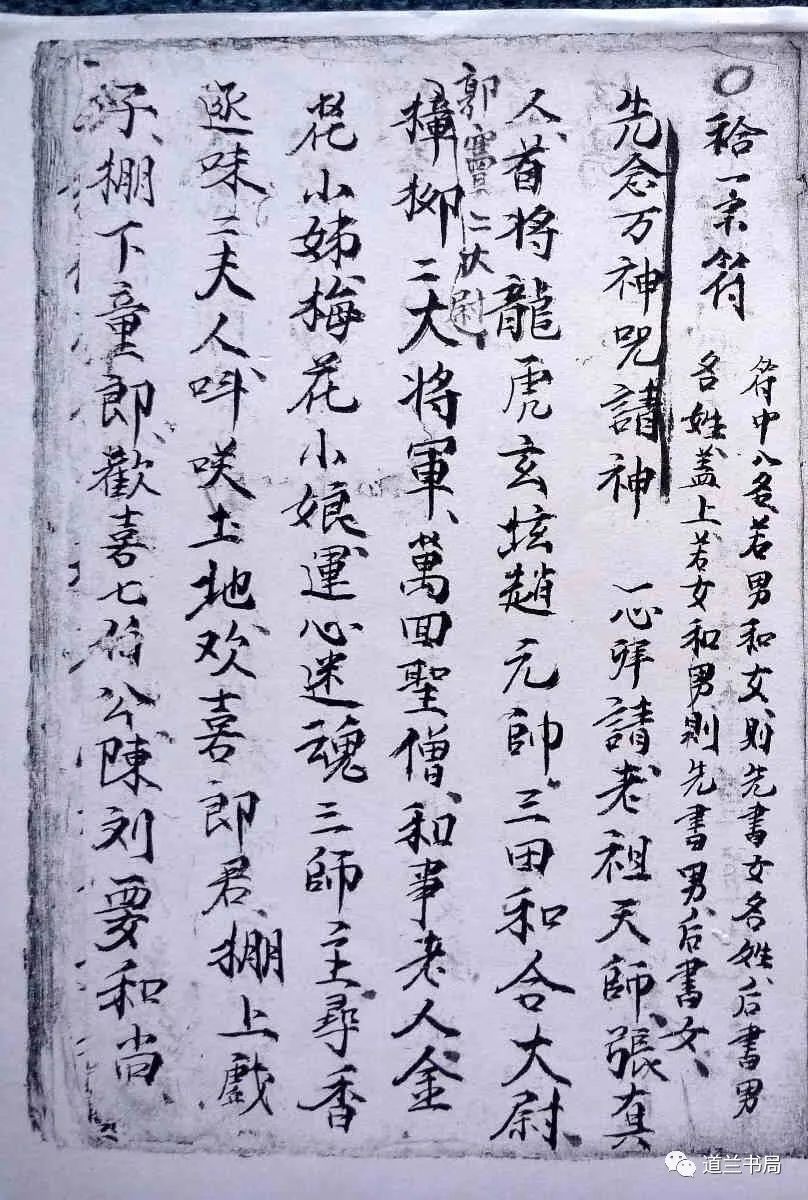 〇 秴一宗符
符中八名若男和女則先書女名姓后書男
名姓蓋上若女和男則先書男后書女
先念万神咒請神 一心拜請老祖天師張真
人首将龍虎玄坛趙元帥三田和合大尉
郭 二伏尉
樟柳二大将軍萬回聖僧和事老人金
花小姊梅花小娘運心迷魂三師主尋香
逐味二夫人叫咲土地欢喜郎君棚上戲
子棚下童郎歡喜七伯公陳刘要和尚
道兰书局